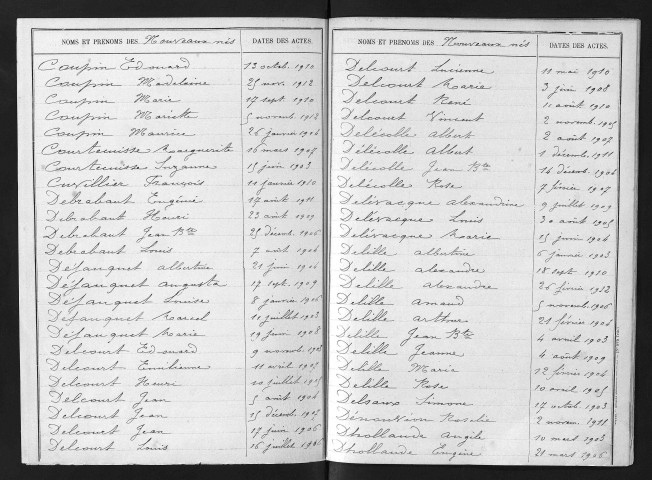 NOMS ET PRÉNOMS DES Nouveaux nés DATES DES ACTES.
Coupin Edouard 13 octob. 1910
Coupin Madeleine 25 nov. 1912
Coupin Marie 17 sept. 1910
Coupin Mariette 5 novemb 1912
Coupin Maurice 26 janvier 1906
Courtecuisse Marguerite 16 mars 1907
Courtecuisse Suzanne 15 juin 1903
Cuvillier François 11 janvier 1910
Debrabant Eugénie 17 août 1911
Debrabant Henri 23 août 1909
Debrabant Jean Bte 25 décemb. 1906
Debrabant Louis 7 août 1906
Défauquet Albertine 21 juin 1904
Défauquet Augusta 17 sept. 1909
Défauquet Louise 8 janvier 1906
Défauquet Marcel 11 juillet 1903
Défauquet Marie 19 janv. 1908
Delcourt Edouard 9 novemb. 1903
Delcourt Emilienne 11 avril 1905
Delcourt Henri 10 juillet 1905
Delcourt Jean 5 août 1904
Delcourt Jean 15 décemb. 1907
Delcourt Jean 17 juin 1906
Delcourt Louis 16 juillet 1906
NOMS ET PRÉNOMS DES Nouveaux nés DATES DES ACTES.
Delcourt Lucienne 11 mai 1910
Delcourt Marie 3 juin 1908
Delcourt René 11 août 1910
Delcourt Vincent 2 novemb. 1905
Delécolle Albert 2 août 1907
Délécolle Albert 1 décemb. 1911
Delécolle Jean Bte 14 décemb. 1906
Delécolle Rose 7 février 1907
Delévacque Alexandrine 9 juillet 1909
Delévacque Louis 30 août 1905
Delévacque Marie 15 janvier 1904
Delille Albertine 6 janvier 1903
Delille Alexandre 18 sept. 1910
Delille Alexandre 26 février 1912
Delille Amand 5 novemb. 1906
Delille Arthur 21 février 1904
Delille Jean Bte 4 avril 1903
Delille Jeanne 4 août 1909
Delille Marie 12 février 1904
Delille Rose 10 avril 1905
Delsaux Simone 17 octob. 1903
Rosalie 2 novem. 1911
Dhollande Angèle 10 mars 1903
Dhollande Eugène 21 mars 1906